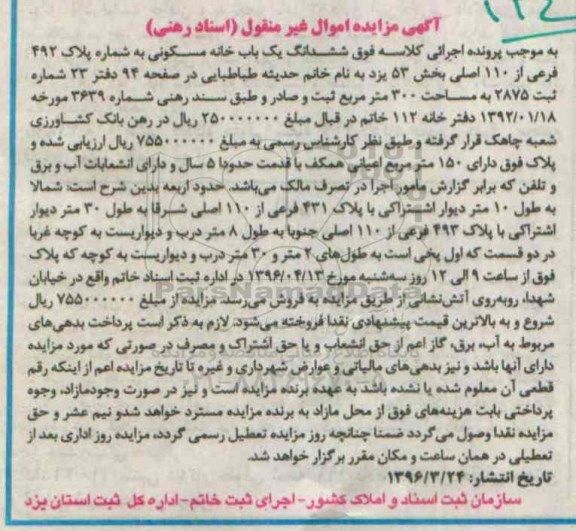 آگهی مزایده اموال غیر منقول (اسناد رهنی)
به موجب پرونده اجرائی کلاسه فوق ششدانگ یک باب خانه مسکونی به شماره پلاک ۴۹۲
فرعی از ۱۱۰ اصلی بخش ۵۳ یزد به نام خانم حدیثه طباطبایی در صفحه ۹۴ دفتر ۲۳ شماره
ثبت ۲۸۷۵ به مساحت ۳۰۰ متر مربع ثبت و صادر و طبق سند رهنی شماره ۳۶۳۹ مورخه
۱۳۹۲/۰۱/۱۸ دفتر خانه ۱۱۲ خاتم در قبال مبلغ ۲۵۰۰۰۰۰۰۰ ریال در رهن بانک کشاورزی
شعبه چاهک قرار گرفته و طبق نظر کارشناس رسمی به مبلغ ۷۵۵۰۰۰۰۰۰ ریال ارزیابی شده و
پلاک فوق دارای ۱۵۰ متر مربع اعیانی همکف با قدمت حدودا ۵ سال و دارای انشعابات آب و برق
و تلفن که برابر گزارش مامور اجرا در تصرف مالک می‌باشد. حدود اربعه بدین شرح است: شمالا
به طول ۱۰ متر دیوار اشتراکی با پلاک ۴۳۱ فرعی از ۱۱۰ اصلی شرقا به طول ۳۰ متر دیوار
اشتراکی با پلاک ۴۹۳ فرعی از ۱۱۰ اصلی جنوبا به طول ۸ متر درب و دیواریست به کوچه غربا
در دو قسمت که اول پخی است به طول‌های ۲ متر و ۳۰ متر درب و دیواریست به کوچه که پلاک
فوق از ساعت ۹ الی ۱۲ روز سه‌شنبه مورخ ۱۳۹۶/۰۴/۱۳ در اداره ثبت اسناد خاتم واقع در خیابان
شهدا، روبه‌روی آتش‌نشانی از طریق مزایده به فروش می‌رسد. مزایده از مبلغ ۷۵۵۰۰۰۰۰۰ ریال
شروع و به بالاترین قیمت پیشنهادی نقدا فروخته می‌شود. لازم به ذکر است پرداخت بدهی‌های
مربوط به آب، برق، گاز اعم از حق انشعاب و یا حق اشتراک و مصرف در صورتی که مورد مزایده
دارای آنها باشد و نیز بدهی‌های مالیاتی و عوارض شهرداری و غیره تا تاریخ مزایده اعم از اینکه رقم
قطعی آن معلوم شده یا نشده باشد به عهده برنده مزایده است و نیز در صورت وجودمازاد، وجوه
پرداختی بابت هزینه‌های فوق از محل مازاد به برنده مزایده مسترد خواهد شدو نیم عشر و حق
مزایده نقدا وصول می‌گردد ضمنا چنانچه روز مزایده تعطیل رسمی گردد، مزایده روز اداری بعد از
تعطیلی در همان ساعت و مکان مقرر برگزار خواهد شد.
تاریخ انتشار: ۱۳۹۶/۳/۲۴
سازمان ثبت اسناد و املاک کشور-اجرای ثبت خاتم-اداره کل ثبت استان یزد